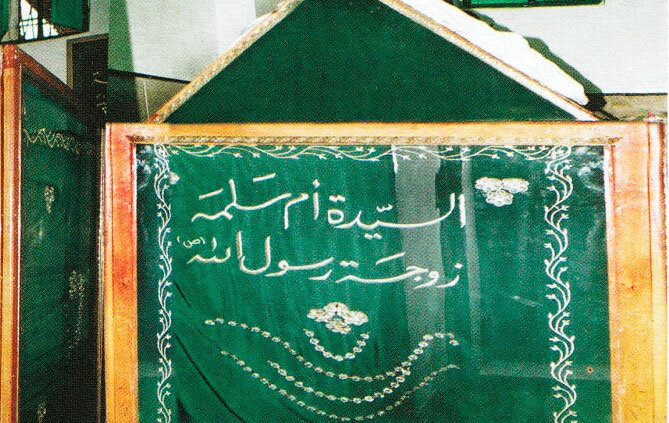 السيّدة أم سلمه
زوجة رسول الله (ص)